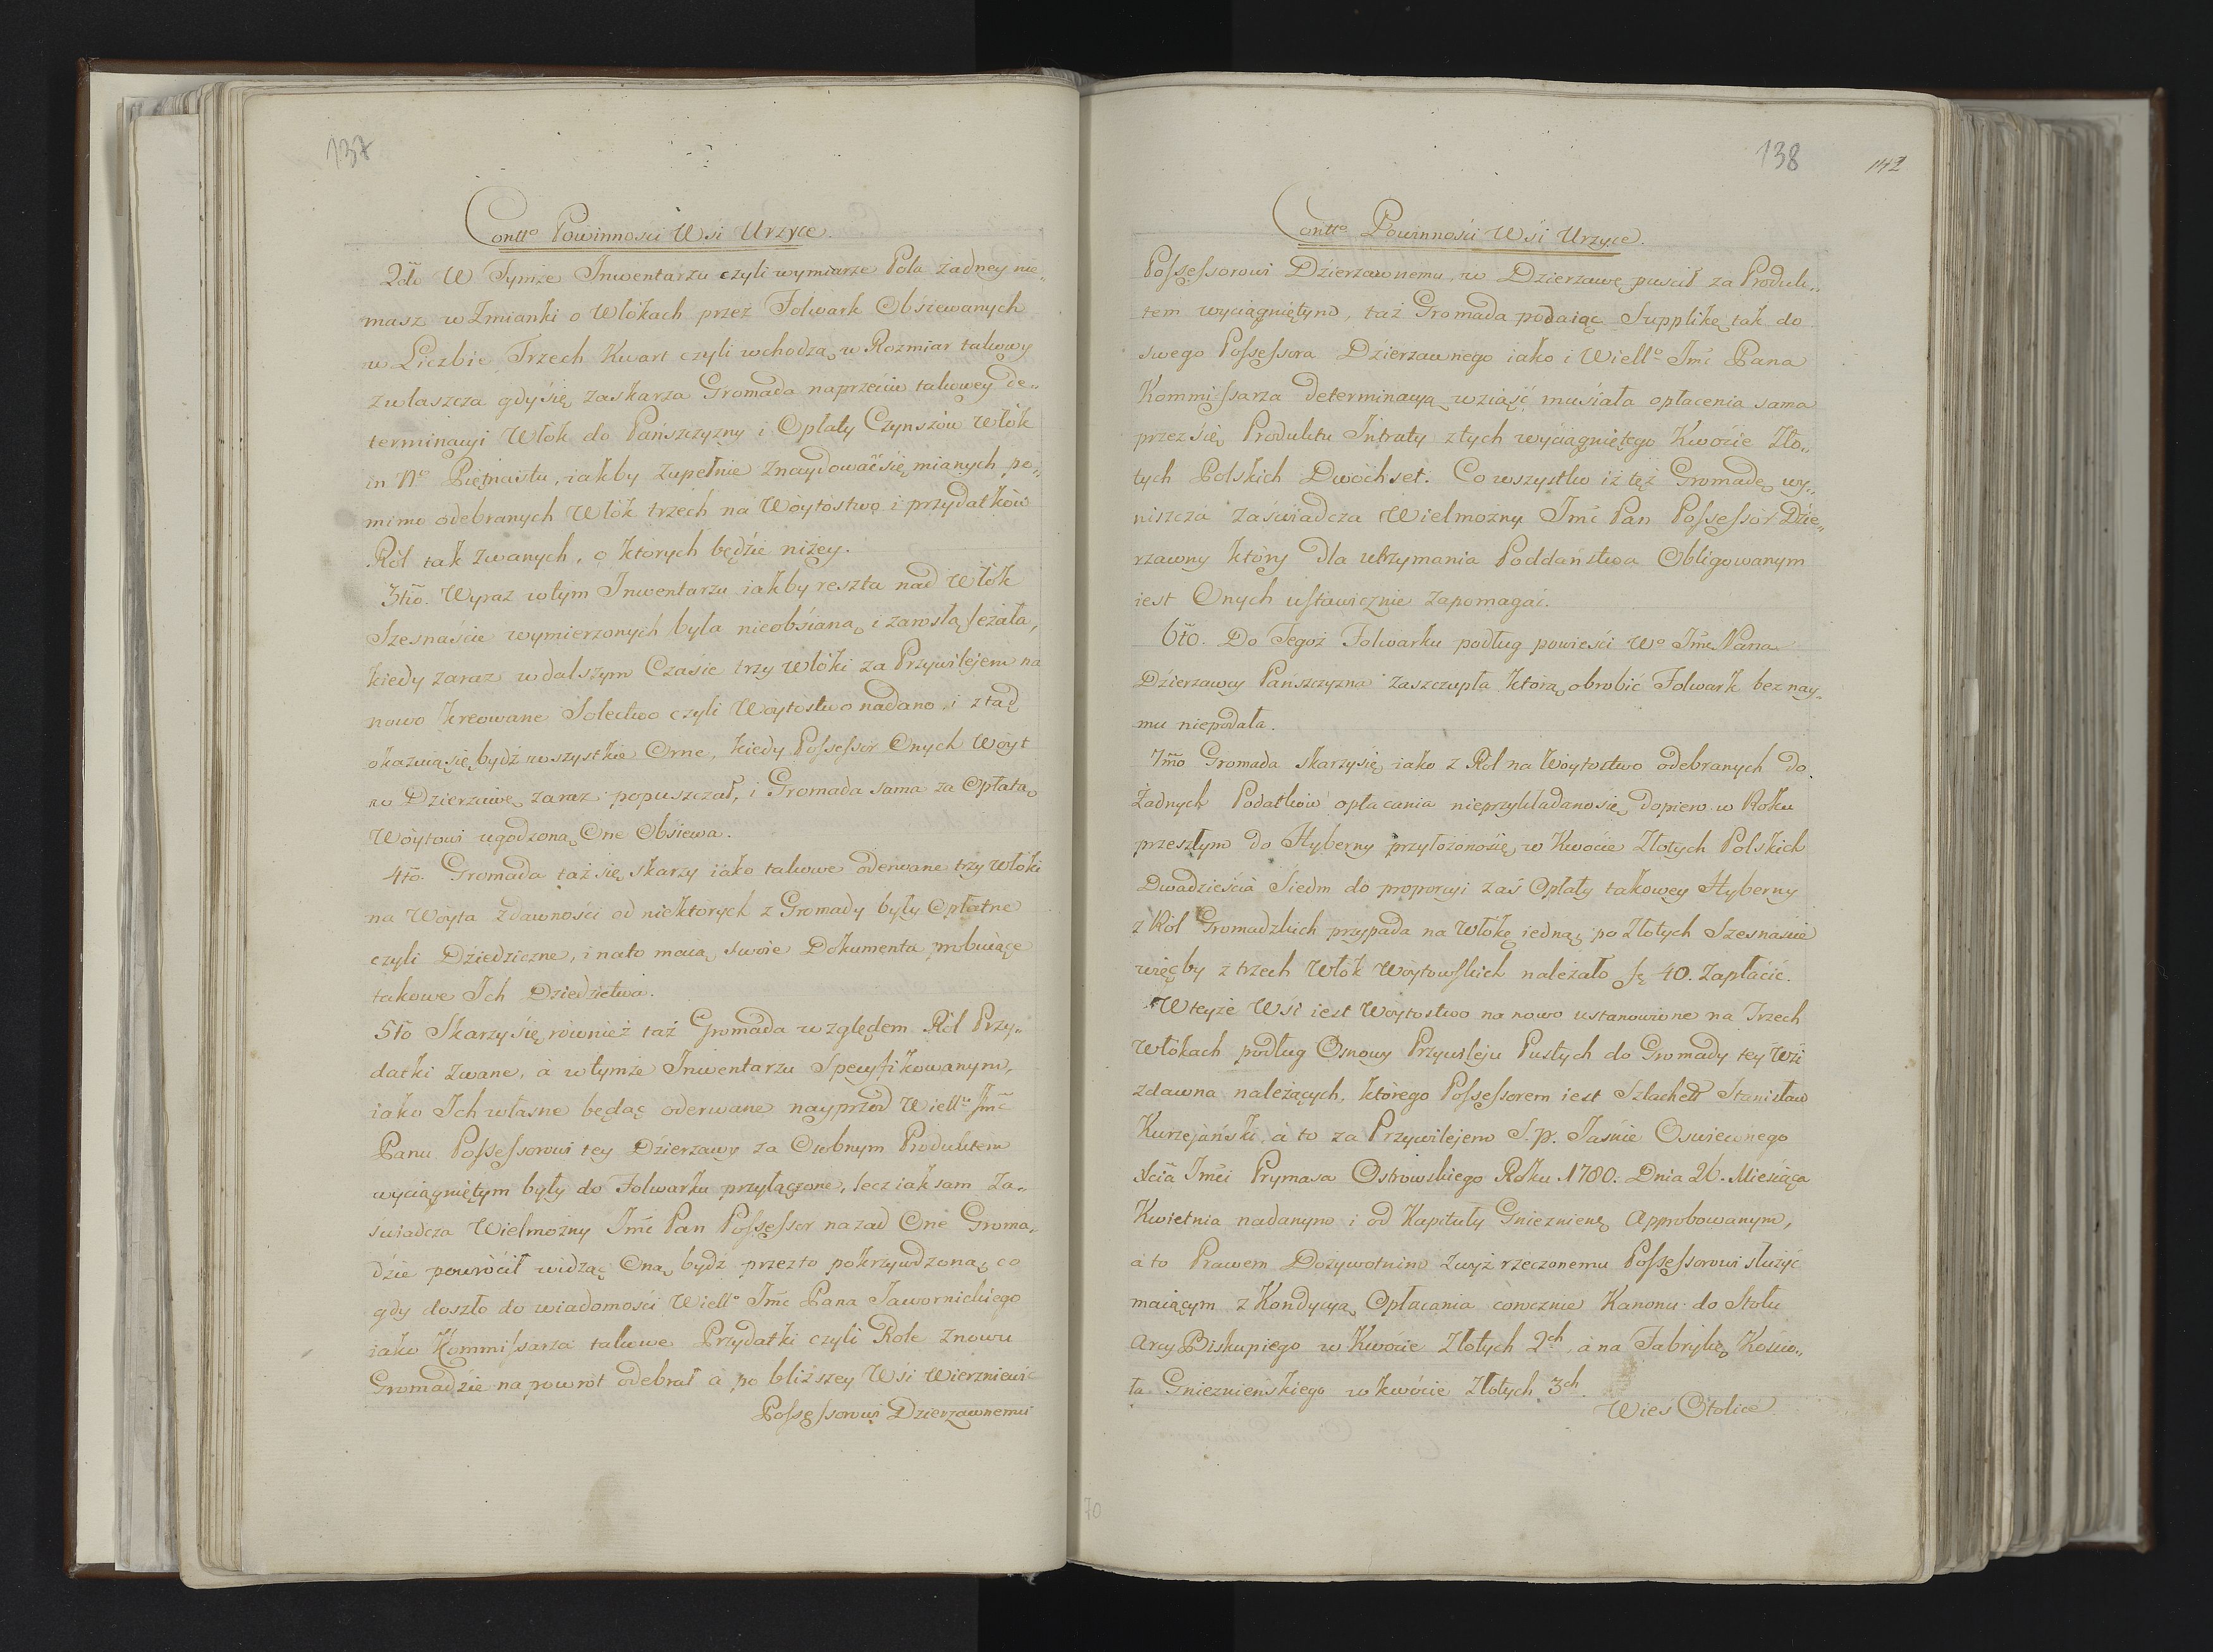 137
Contto Powinnosci Wsi Urzyce.
2do W Tymże Inwentarzu czyli wymiarze Pola żadney nie„
masz wZmianki o Włókach przez Folwark Obsiewanych
w Liczbie Trzech Kwart czyli wchodzą w Rozmiar takowy
zwłaszcza gdy się zaskarza Gromada naprzeciw takowey de„
terminacyi Włok do Pańszczyzny i Opłaty Czynszów Włók
in No Piętnastu, iakby zupełnie znaydować się mianych po„
mimo odebranych Włók trzech na Woytostwo i przydatków
Ról tak zwanych, o ktorych będzie niżey.
3tio. Wyraz wtym Inwentarzu iakby reszta nad Włók
Szesnaście wymierzonych była nieobsianą i zarosłą leżała,
kiedy zaraz w dalszym Czasie trzy Włóki za Przywilejem na
nowo kreowane Solectwo czyli Woytostwo nadano, i ztąd
okazuią się bydź wszystkie Orne, kiedy Possessor Onych Woyt
w Dzierzawę zaraz popuszczał, i Gromada sama za Opłatą
Woytowi ugodzoną One Obsiewa.
4to. Gromada taż się skarzy iako takowe oderwane trzy Włóki
na Woyta zdawności od niektorych z Gromady były Opłatne
czyli Dziedziczne, i nato maią swoie Dokumenta probuiące
takowe Ich Dziedzictwa.
5to Skarzy się również taż Gromada względem Ról Przy„
datki zwane, a wtymże Inwentarzu Specyfikowanym,
iako Ich własne będąc oderwane nayprzod Wiellmo Jmć
Panu Possessorowi tey Dzierzawy za Osobnym Produktem
wyciągniętym były do Folwarku przyłączone, lecz iak sam Za„
świadcza Wielmożny Jmć Pan Possessor nazad One Groma„
dzie powrócił widząc Oną bydź przezto pokrzywdzoną, co
gdy doszło do wiadomości Wiello Jmć Pana Jawornickiego
iako Kommissarza takowe Przydatki czyli Role Znowu
Gromadzie na powrót odebrał a po bliższey Wsi Wierzniewic
Possessorowi Dzierzawnemu
138
142
Contto Powinności Wsi Urzyce.
Possessorowi Dzierzawnemu w Dzierzawę puścił za Produk„
tem wyciągniętym, taż Gromada podaiąc Supplikę tak do
swego Possessora Dzierzawnego iako i Wiello Jmć Pana
Kommissarza determinacyą wziąść musiała opłacenia sama
przez się Produktu Intraty ztych wyciągniętego Kwocie Zło„
tych Polskich Dwochset. Co wszystko iż też Gromadę wy„
niszcza zaświadcza Wielmożny Jmć Pan Possessor Dzie„
rzawny który dla utrzymania Poddaństwa Obligowanym
iest Onych ustawicznie zapomagać.
6to. Do Tegoż Folwarku podług powieści Wo Jmć Pana
Dzierzawcy Pańszczyzna zaszczupła którą obrobić Folwark bez nay„
mu niepodała.
7mo Gromada skarzy się iako z Ról na Woytostwo odebranych do
Żadnych Podatków opłacania nieprzykładano się, dopiero w Roku
przeszłym do Hyberny przyłożono się w Kwocie Złotych Polskich
Dwadzieścia Siedm do proporcyi zaś Opłaty takowey Hyberny
z Ról Gromadzkich przypada na Włókę iedną po Złotych Szesnaście
więcby z trzech Włók Woytowskich należało fę 40. Zapłacić.
Wteyże Wsi iest Woytostwo na nowo ustanowione na Trzech
Włókach podług Osnowy Przywileju Pustych do Gromady tey Wsi
zdawna należących, którego Possessorem iest Szlachett Stanisław
Kurzejański, a to za Przywilejem S. p. Jaśnie Oswieconego
Xcia Jmci Prymasa Ostrowskiego Roku 1780. Dnia 26. Miesiąca
Kwietnia nadanym i od Kapituły Gnieznieńs Approbowanym,
a to Prawem Dozywotnim zwyż rzeczonemu Possessorowi służyć
maiącym z Kondycyą Opłacania corocznie Kanonu do Stołu
Arcy Biskupiego w Kwocie Złotych 2ch, a na Fabrykę Kościo„
ła Gnieznieńskiego w kwocie Złotych 3ch.
Wieś Stolice
70